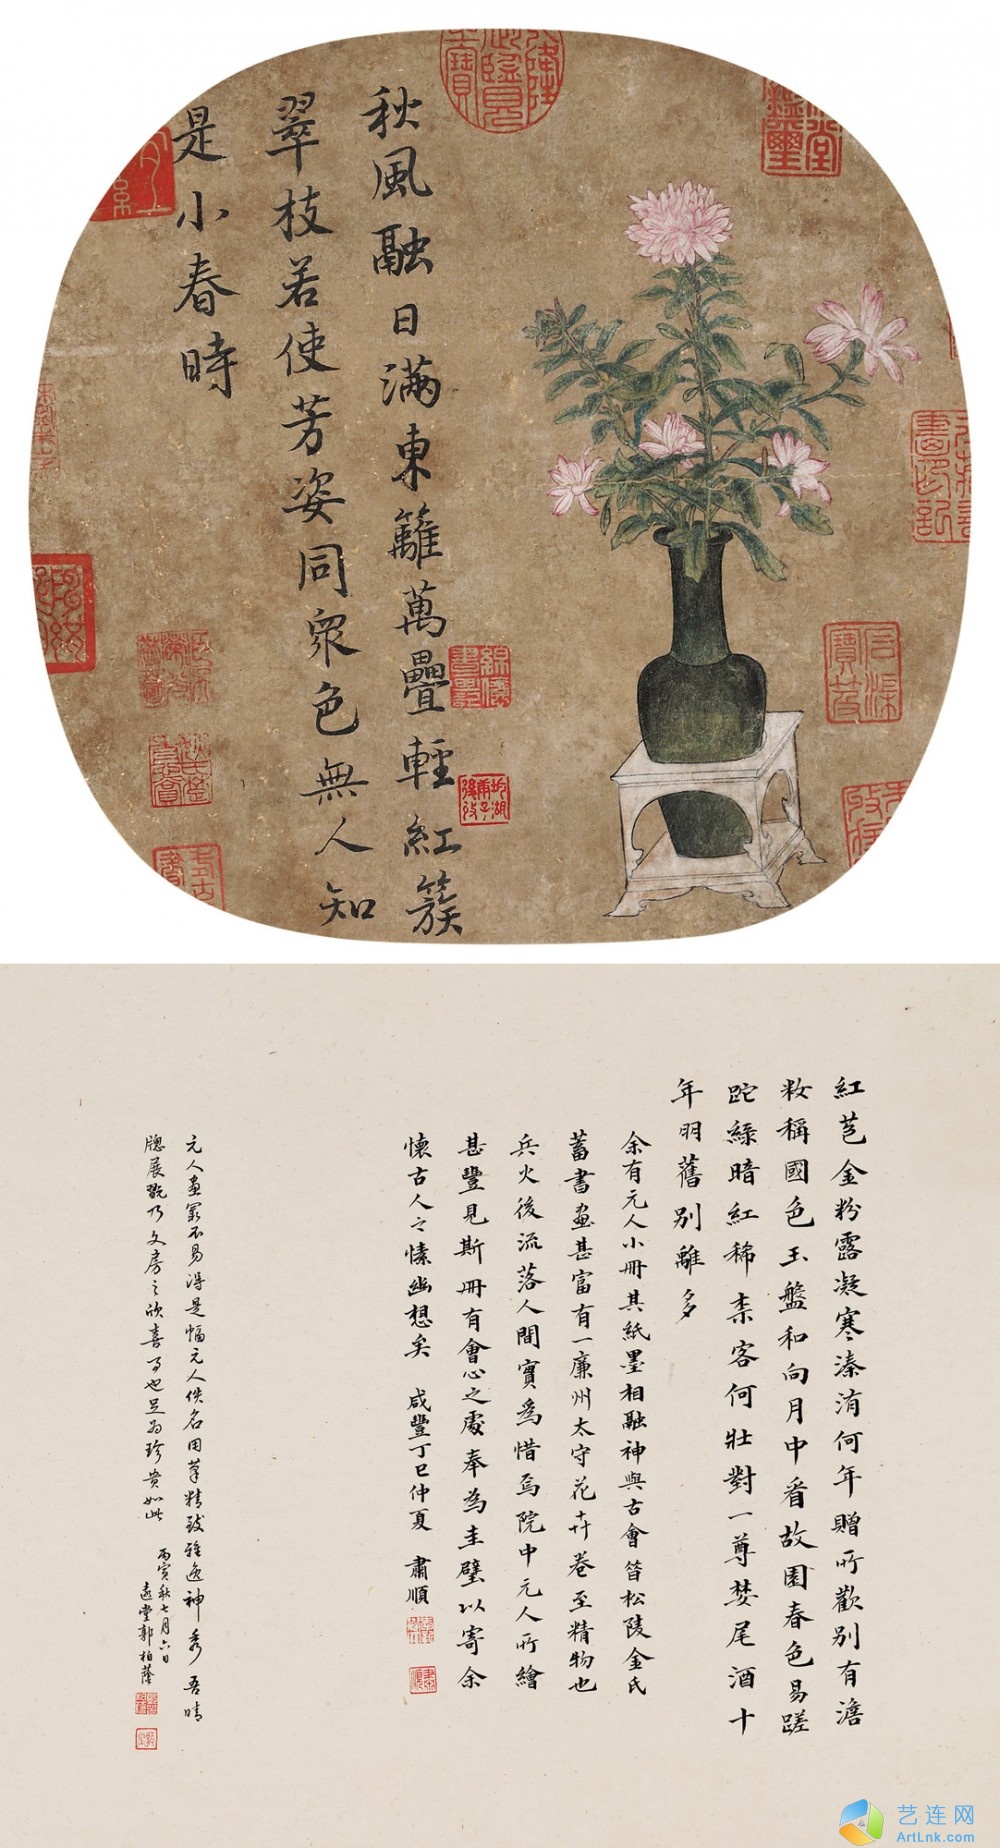 秋風融日滿東籬萬疊輕紅簇
翠枝若使芳姿同衆色無人知
是小春時
紅芭金粉露凝寒溱洧何年贈所歡別有澹
粧稱國色玉盤和向月中看故園春色易蹉
跎綠暗紅稀柰客何壯對一尊婪尾酒十
年明舊別離多
余有元人小冊其紙墨相融神與古會昔松陵金氏
蓄書畫甚富有一廉州太守花卉卷至精物也
兵火後流落人間實為惜焉院中元人所繪
甚豐見斯冊有會心之處奉為圭璧以寄余
懷古人之愫幽想矣 咸豐丁巳仲夏 肅順
元人畫冣不易得是幅元人佚名用筆精致雅逸神秀吾晴
牕展翫乃文房之欣喜事也足為珍貴如此
丙寅秋七月六日
遠堂郭柏蔭
艺连网
ArtLnk.com